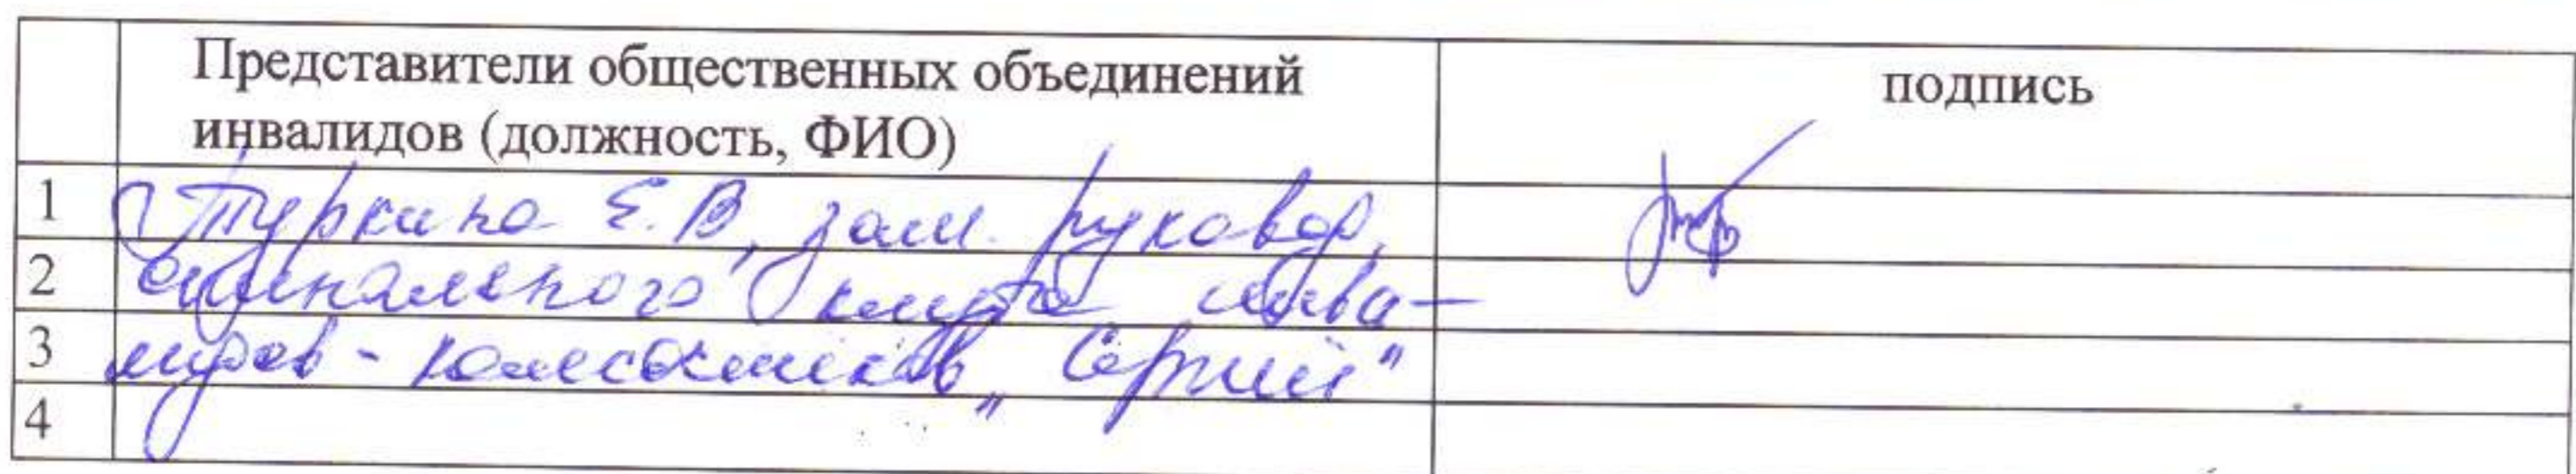 Представители общественных объединений
инвалидов (должность, ФИО)
подпись
1 Туркина Е.В, зам. руковод.
2 клуба инва-
3 лидов-колясочников „
4